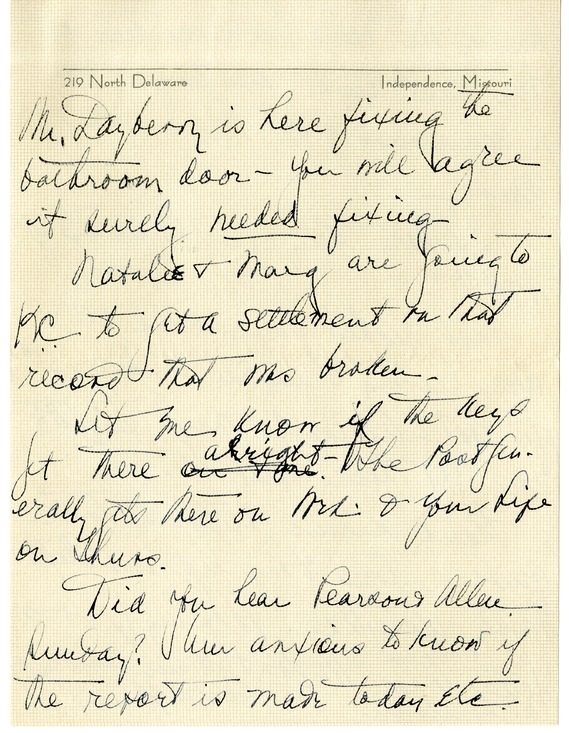 219 North Delaware Independence, Missouri
Mr. Dayberry is here fixing the
bathroom door - you will agree
it surely needed fixing
Natalie & Marg are going to
K.C. to get a settlement on that
record that was broken -
Let me know if the keys
get there on time. alright - The Post gen-
erally gets there on Wed. & your Life
on Thurs.
Did you hear Pearson & Allen
Sunday? I'm anxious to know if
the report is made today etc.